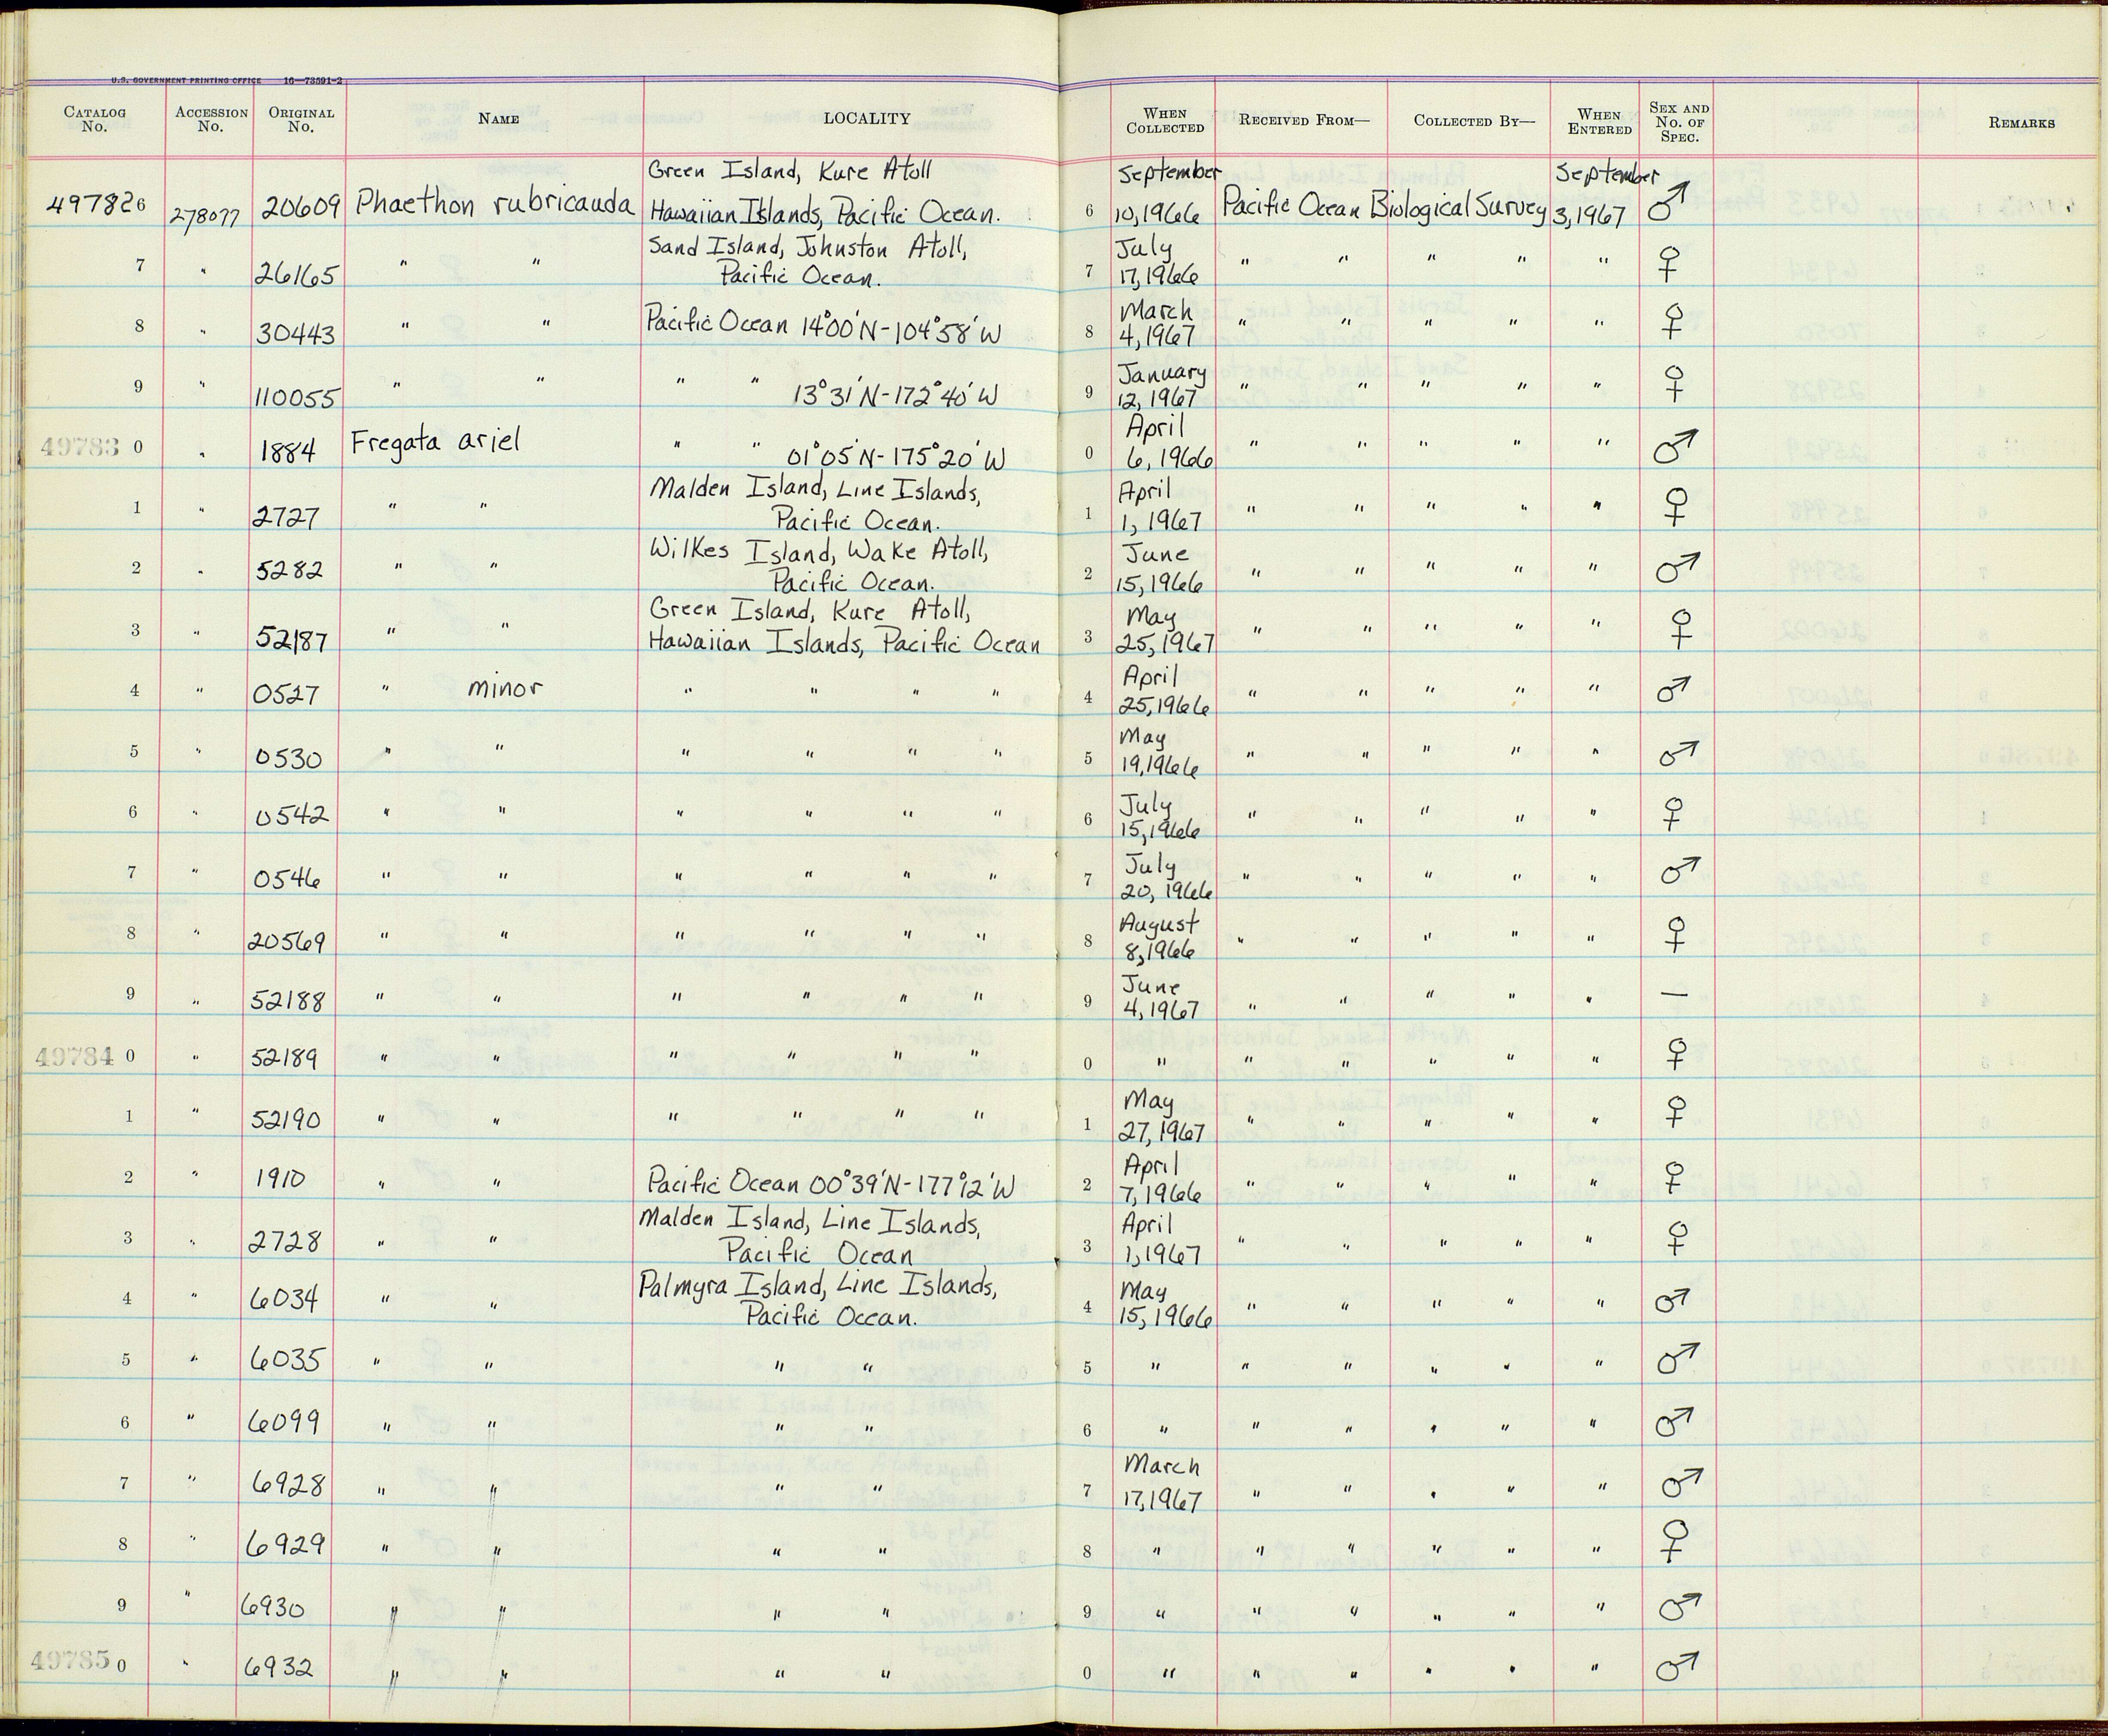 U.S. GOVERNMENT PRINTING OFFICE 16—73591-2
CATALOG No. ACCESSION No. ORIGINAL No. NAME LOCALITY WHEN COLLECTED RECEIVED FROM— COLLECTED BY— WHEN ENTERED SEX AND No. OF SPEC. REMARKS
Green Island, Kure Atoll September September
497826 278077 20609 Phaethon rubricauda Hawaiian Islands, Pacific Ocean. 6 10,1966 Pacific Ocean Biological Survey 3,1967 ♂
Sand Island, Johnston Atoll, July
7 " 26165 " " Pacific Ocean. 7 17,1966 " " " " " ♀
March
8 " 30443 " " Pacific Ocean 14°00'N-104°58'W 8 4,1967 " " " " " ♀
January
9 " 110055 " " " " 13°31'N-172°40'W 9 12,1967 " " " " " ♀
April
49783 0 " 1884 Fregata ariel " " 01°05'N-175°20'W 0 6,1966 " " " " " ♂
Malden Island, Line Islands, April
1 " 2727 " " Pacific Ocean. 1 1,1967 " " " " " ♀
Wilkes Island, Wake Atoll, June
2 " 5282 " " Pacific Ocean. 2 15,1966 " " " " " ♂
Green Island, Kure Atoll, May
3 " 52187 " " Hawaiian Islands, Pacific Ocean 3 25,1967 " " " " " ♀
April
4 " 0527 " minor " " " " 4 25,1966 " " " " " ♂
May
5 " 0530 " " " " " " 5 19,1966 " " " " " ♂
July
6 " 0542 " " " " " " 6 15,1966 " " " " " ♀
July
7 " 0546 " " " " " " 7 20,1966 " " " " " ♂
August
8 " 20569 " " " " " " 8 8,1966 " " " " " ♀
June
9 " 52188 " " " " " " 9 4,1967 " " " " " —
49784 0 " 52189 " " " " " " 0 " " " " " " ♀
May
1 " 52190 " " " " " " 1 27,1967 " " " " " ♀
April
2 " 1910 " " Pacific Ocean 00°39'N-177°12'W 2 7,1966 " " " " " ♀
Malden Island, Line Islands, April
3 " 2728 " " Pacific Ocean 3 1,1967 " " " " " ♀
Palmyra Island, Line Islands, May
4 " 6034 " " Pacific Ocean. 4 15,1966 " " " " " ♂
5 " 6035 " " " " 5 " " " " " " ♂
6 " 6099 " " " " 6 " " " " " " ♂
March
7 " 6928 " " " " 7 17,1967 " " " " " ♂
8 " 6929 " " " " 8 " " " " " " ♀
9 " 6930 " " " " 9 " " " " " " ♂
49785 0 " 6932 " " " " 0 " " " " " " ♂